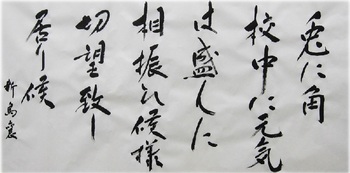 兎に角
校中に元気
は盛んに
相振ひ候様
切望致し
居り候
新島襄